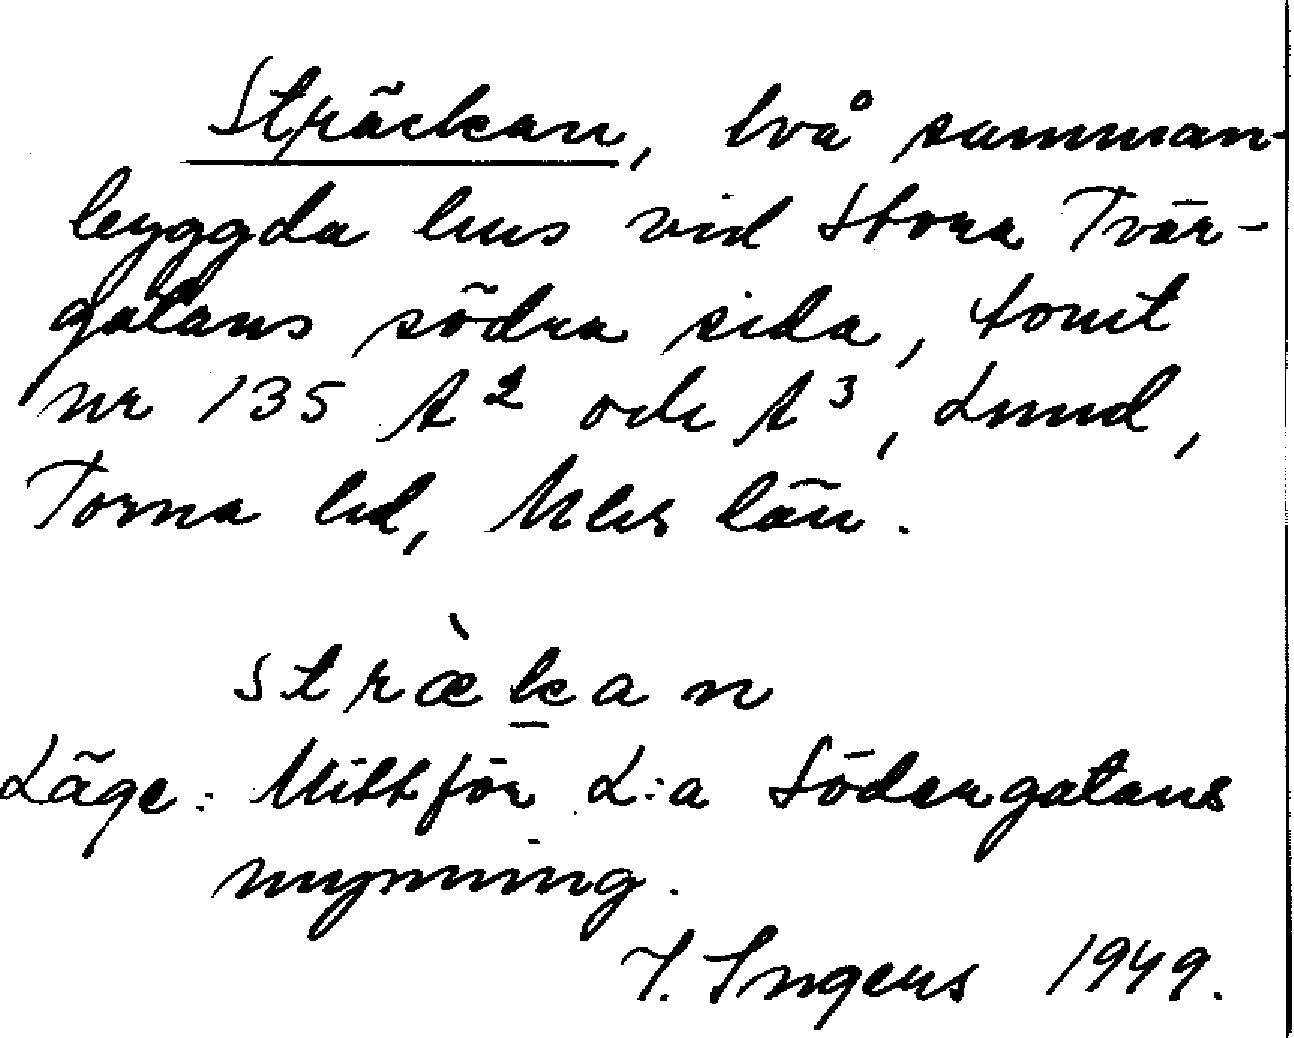 Sträckan, två samman-
byggda hus vid Stora Tvär-
gatans södra sida, tomt
nr 135 A² och A³, Lund,
Torna hd, Mlhs län.
stræ̀k̲an
Läge: Mittför L:a Södergatans
mynning.
I. Ingers 1949.